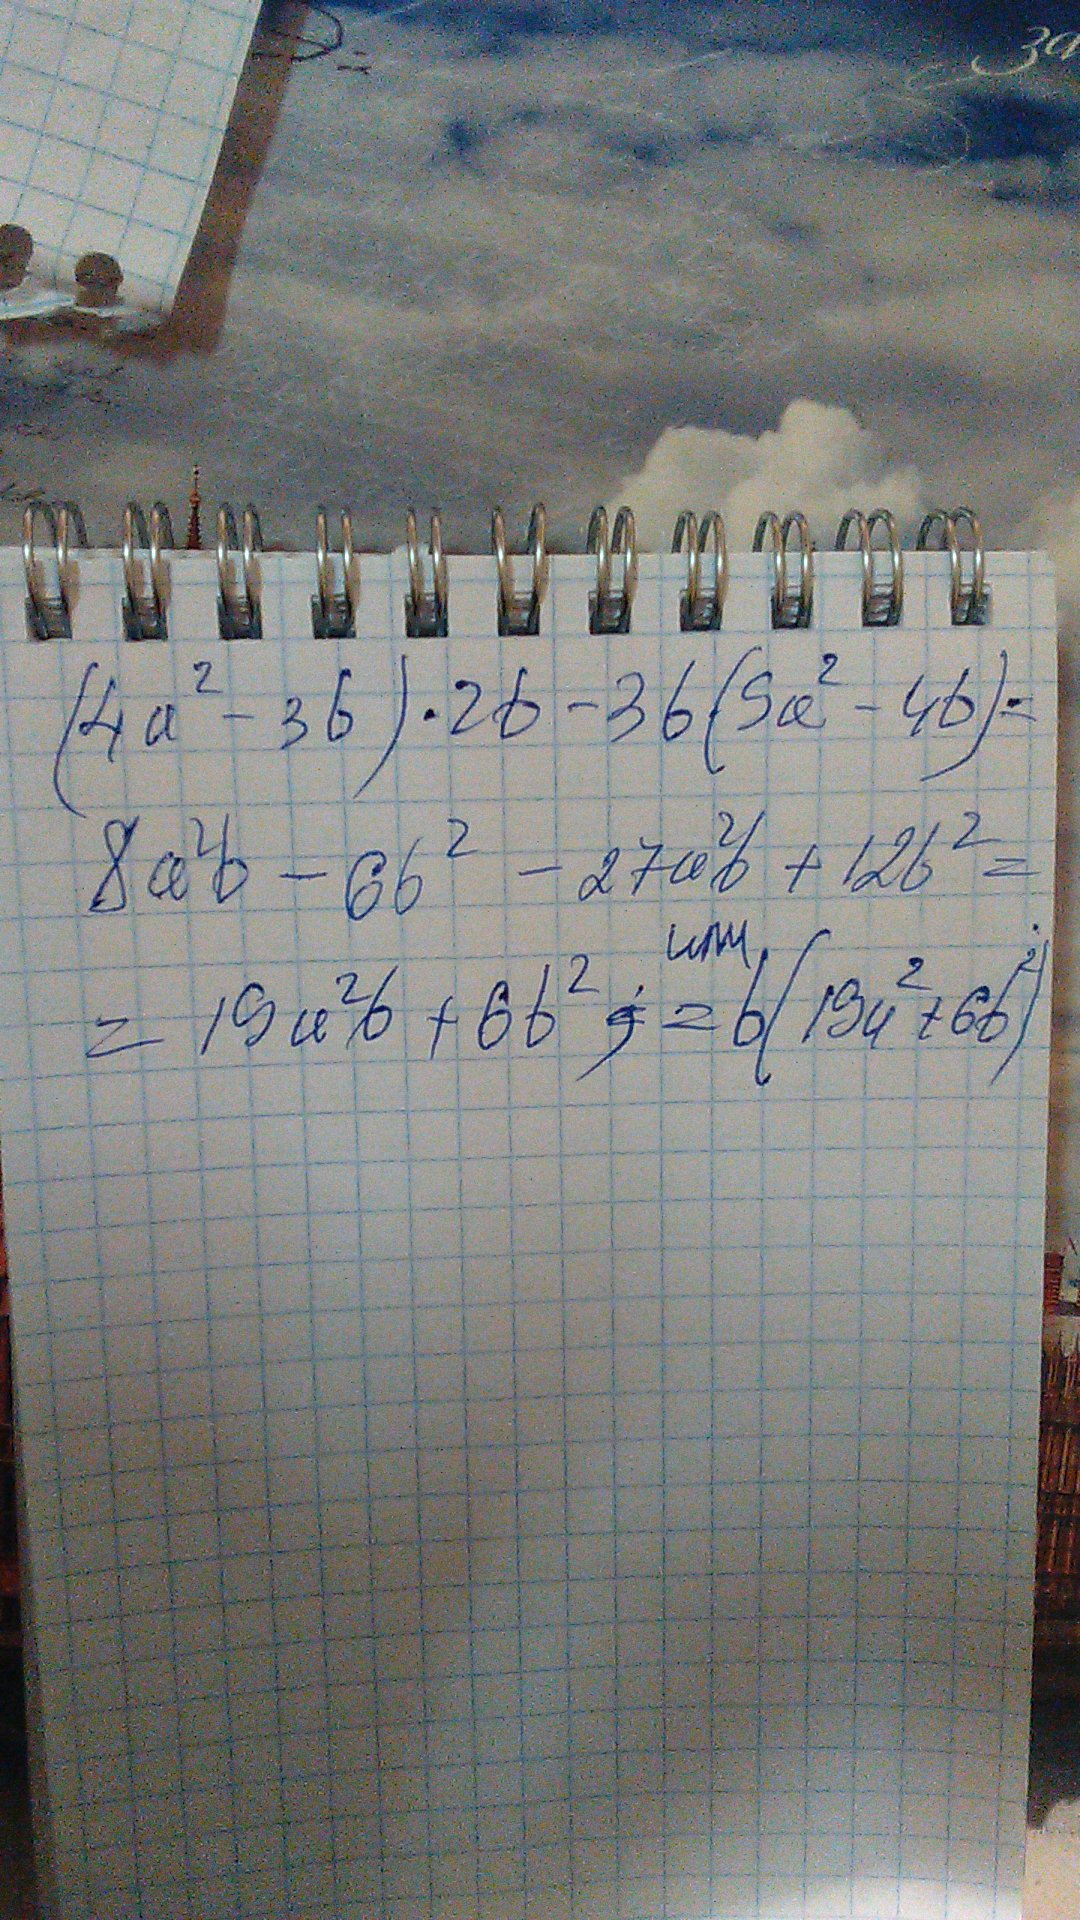 за
(4a² - 3b) · 2b - 3b(9a² - 4b) =
8a²b - 6b² - 27a²b + 12b² =
= 19a²b + 6b² ; или = b(19a² + 6b²)